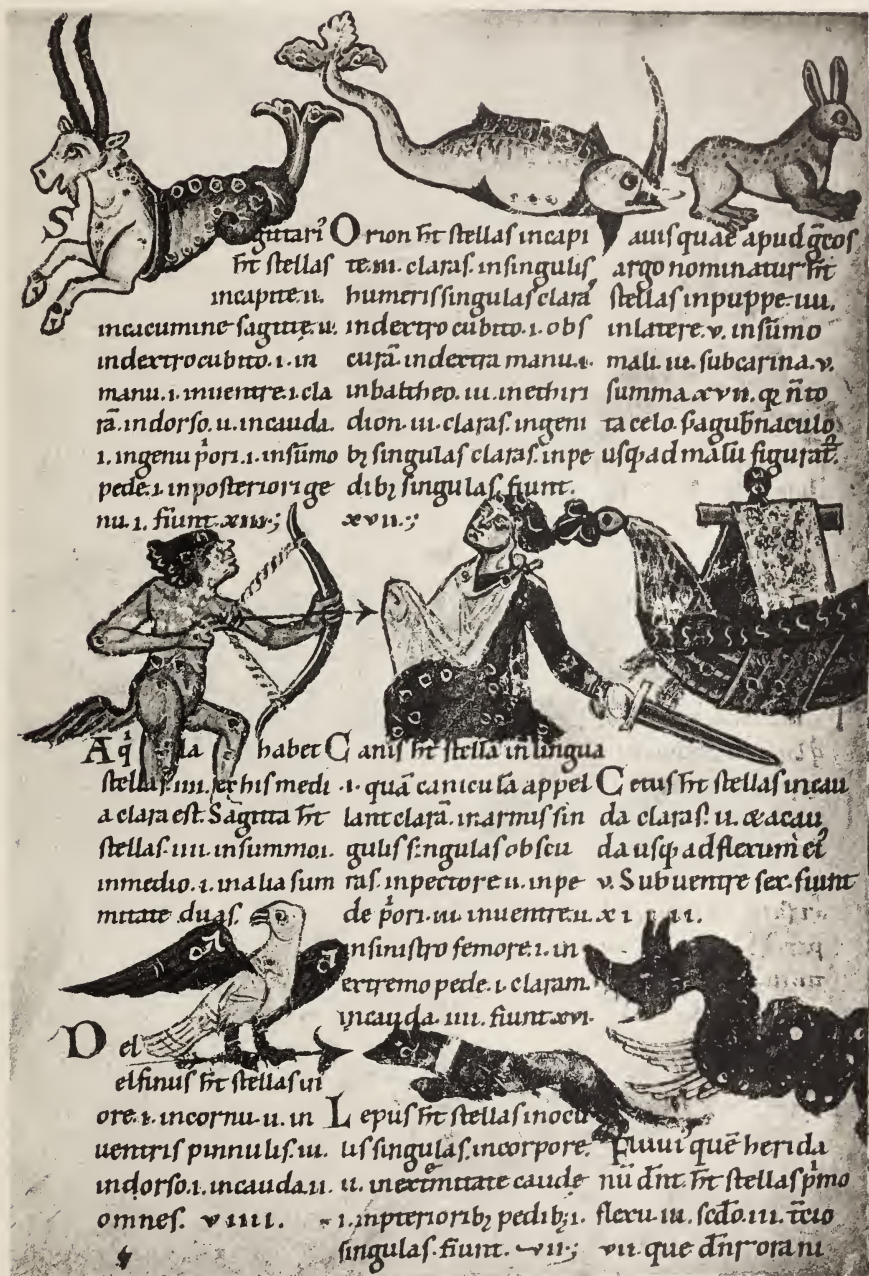 Sagittari
ħt stellas
incapite .ii.
incacumine sagitte .ii.
indextro cubito .i. in
manu .i. inuentre .i. cla
rā. indorso .ii. incauda
.i. ingenu p̄ori .i. insūmo
pede .i. inposteriori ge
nu .i. fiunt. xiiii.;
Aq̇la habet
stellas .iiii. ex his medi
a clara est. Sagitta ħt
stellas .iiii. insummo .i.
inmedio .i. inalia sum
mitate duas.
Del
elfinus ħt stellas in
ore .i. incornu .ii. in
uentris pinnulis .iii.
indorso .i. incauda .ii.
omnes. viiii.
Orion ħt stellas incapi
te .iii. claras. insingulis
humeris singulas clarā
indextro cubito .i. obs
curā. indextra manu .i.
inbaltheo .iii. inethiri
dion .iii. claras. ingeni
bꝫ singulas claras. inpe
dibꝫ singulas. fiunt.
xvii.;
Canis ħt stellā inlingua
.i. quā canicula appel
lant clarā. inarmis sin
gulis singulas obscu
ras. inpectore .ii. inpe
de p̄ori .iii. inuentre .ii.
insinistro femore .i. in
extremo pede .i. claram.
incauda .iiii. fiunt xvi.
Lepus ħt stellas inocu
lis singulas. incorpore
.ii. inextmitate caude
.i. inpterioribꝫ pedibꝫ .i.
singulas. fiunt. vii.;
auis quae apud g̃cos
argo nominatur ħt
stellas inpuppe .iiii.
inlatere .v. insūmo
mali .iii. sub carina .v.
summa xvii. q̨ n̄ to
ta celo. s; a gub̄naculo
usq̨ ad malū figurat̃.
Cetus ħt stellas incau
da claras .ii. & a cau
da usq̨ ad flexum eiꝰ
.v. Sub uentre sex. fiunt
xiii.
Fluuiꝰ quē herida
nū dn̄t. ħt stellas p̄mo
flexu .iii. sc̄do .iii. t̄cio
vii. que dn̄r orani